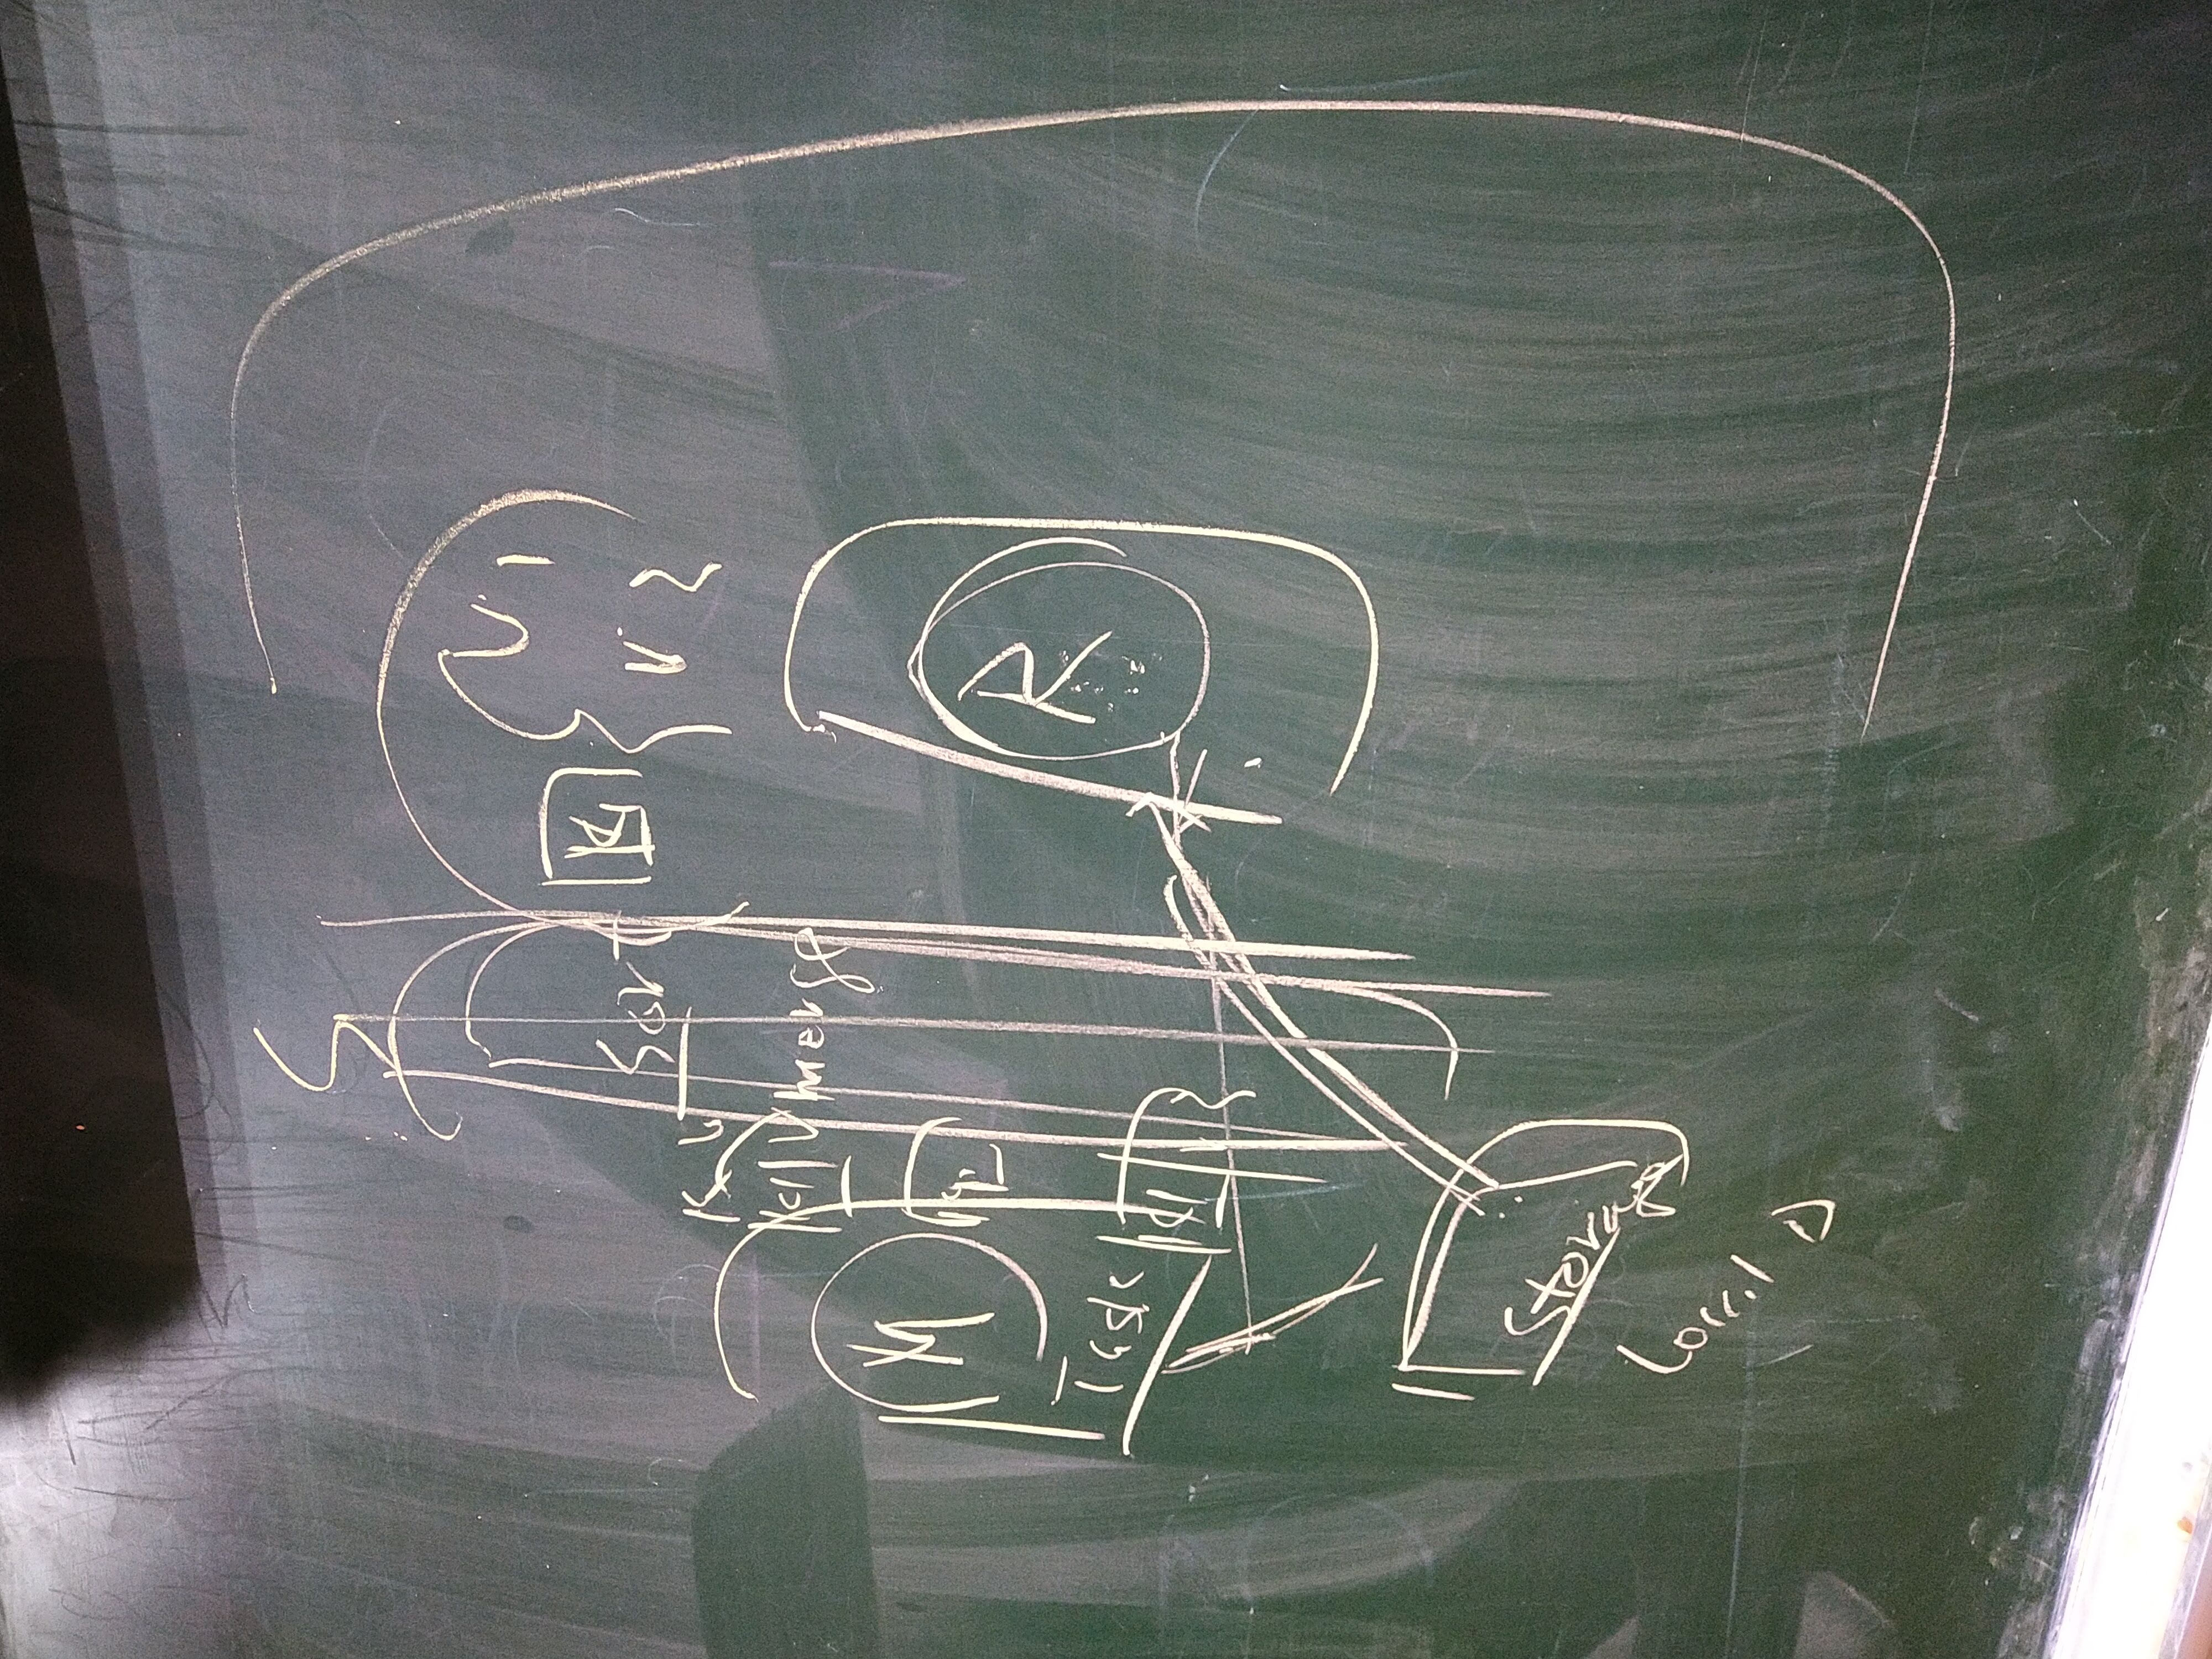 Sort
K
V1
V2
K V
K1 V merge
M
K2
R
Task
K1
Storage
Local D